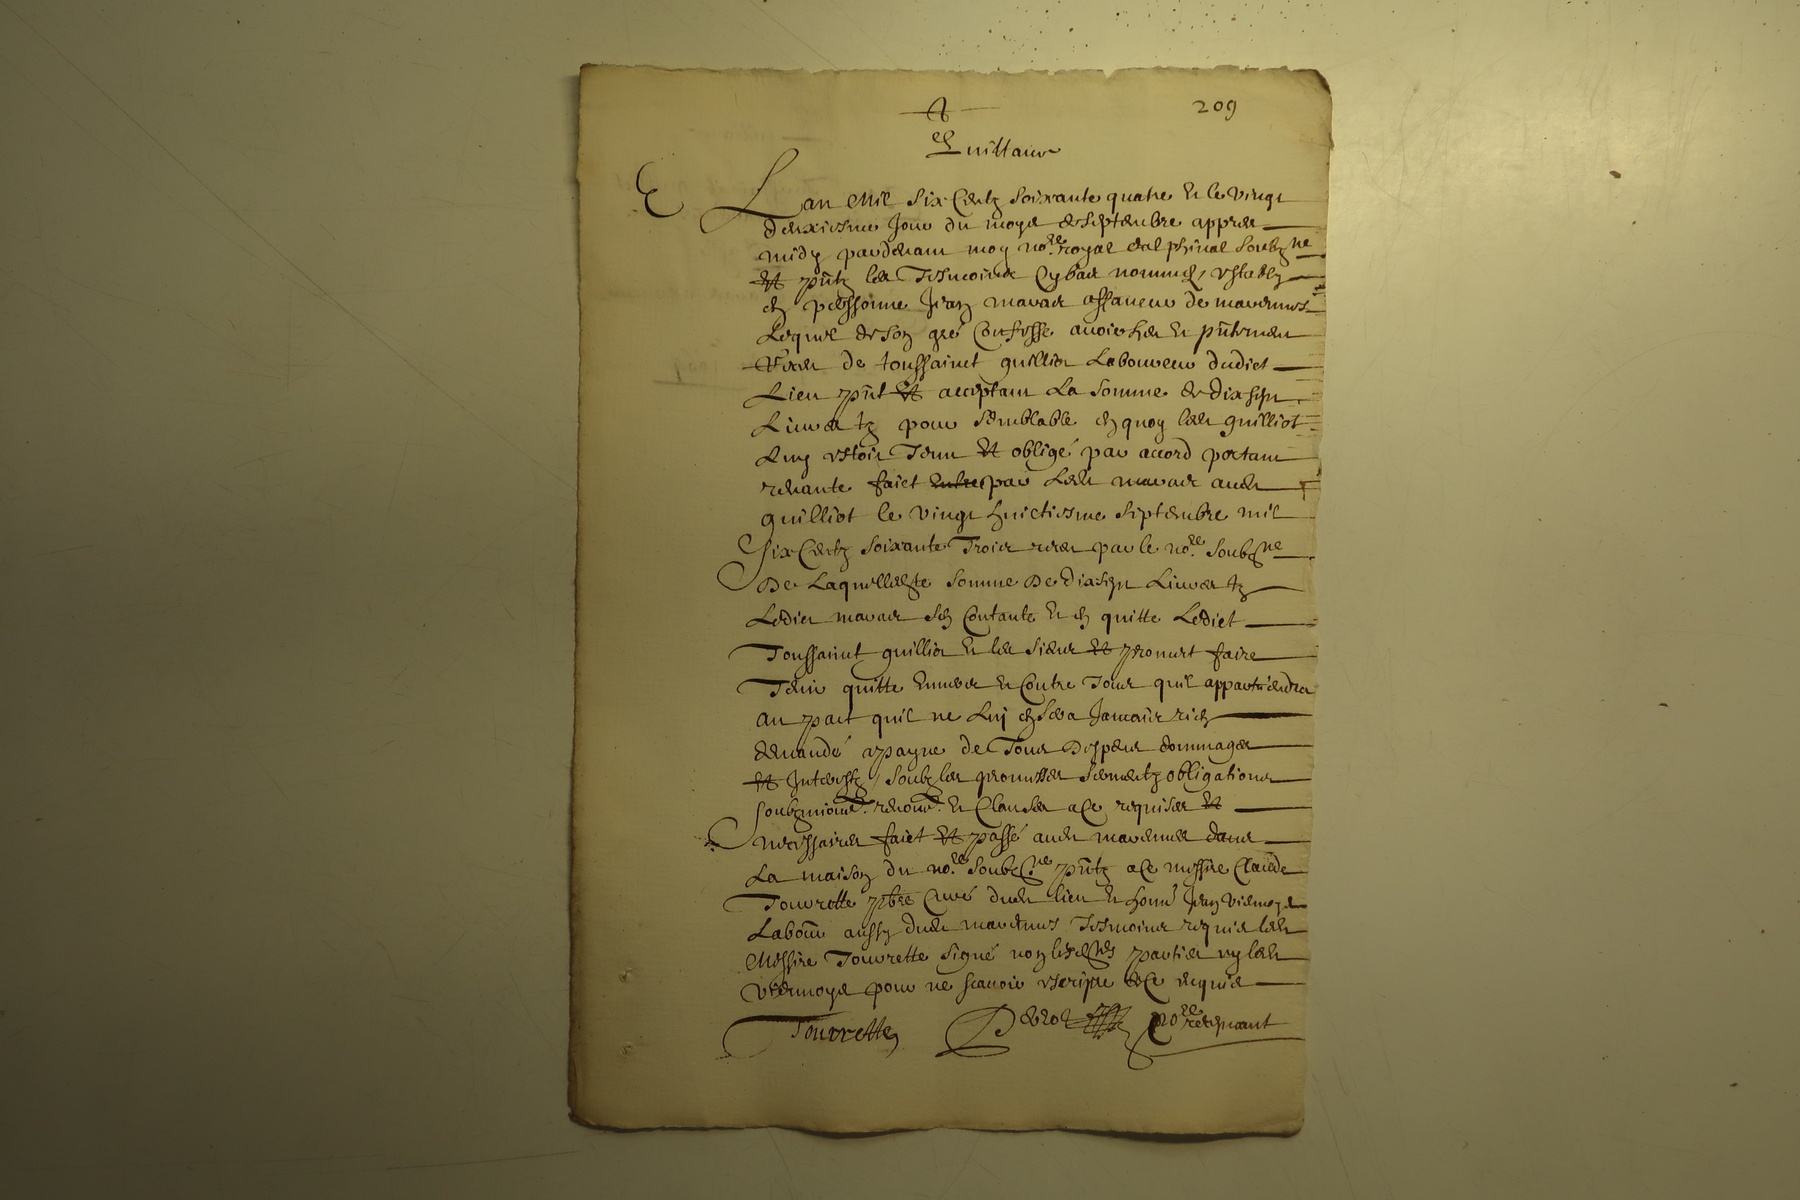 209
Quittance
Lan Mil six Centz soixante quatre et le vingt
deuxiesme Jour du moys de septembre appres
midy pardevant moy no.re royal dalphinal soubz.ne
et pntz les Tesmoins cy bas nommés, establÿ
en personne Jean mavas
Lequel de son gré Confesse avoir heu et
de toussainct guillio Laboureur dudict
Lieu pnt et acceptant La somme de dix sept
Livres tz pour semblable en quoy ledt guilliot
Luy estoit Tenu et obligé par accord portant
faict entre par Ledt mavas audt
guilliot le vingt huictiesme septembre mil
six Centz soixante Trois par le no.re soubz.ne
De Laquelle somme De dix sept Livres tz
Ledict mavas sen Contante et en quitte Ledict
Toussainct guillio et les siens et promet faire
Tenir quitte envers et Contre Tous quil appartiendra
au pact quil ne Luy en sera Jamais rien
demandé a payne de Tous Despens dommages
et Interestz / soubz les promesses sermentz obligations
et Clauses a ce requises et
necessaires faict et passé audt dans
La maison du no.re soubz.ne pntz a ce messire Claude
Tourrette pbre Curé dudt lieu et
aussy dudt Tesmoins requis ledt
Messire Tourrette signé non lesdtes parties ny ledt
pour ne scavoir escripre de ce requis
Tourrette no.re